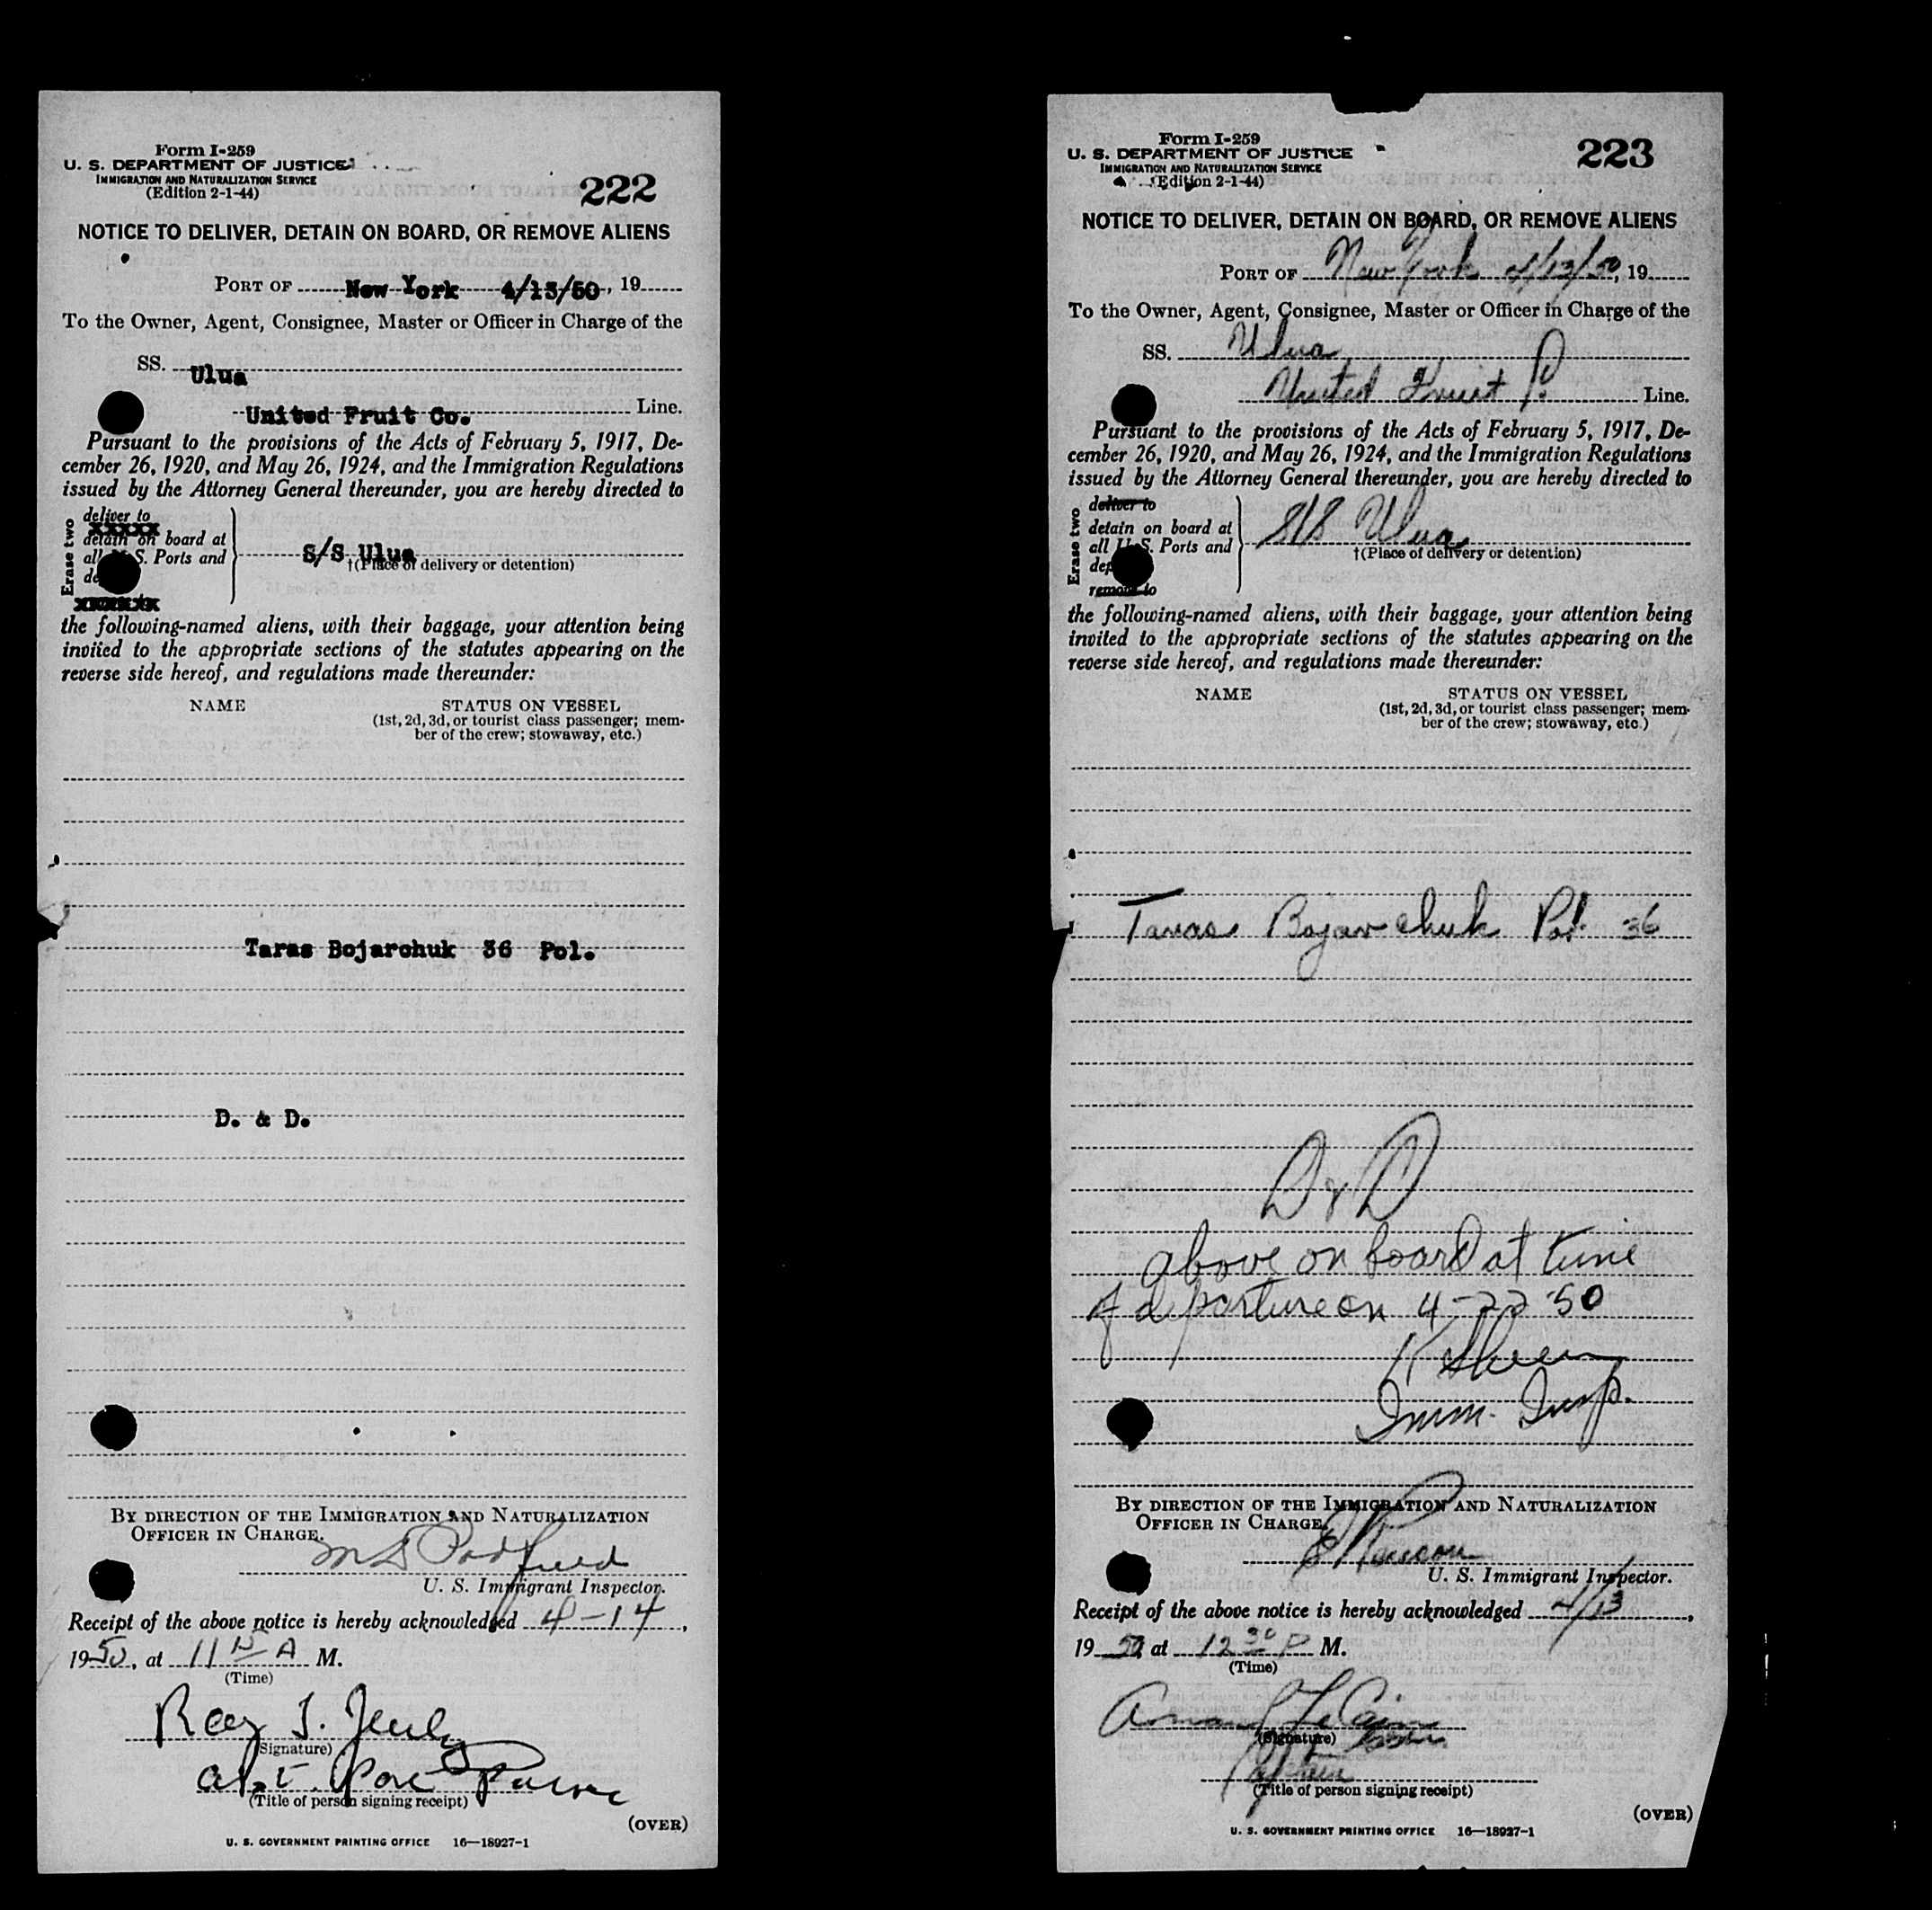 Form I-259
U. S. DEPARTMENT OF JUSTICE
IMMIGRATION AND NATURALIZATION SERVICE
(Edition 2-1-44)
222
NOTICE TO DELIVER, DETAIN ON BOARD, OR REMOVE ALIENS
PORT OF New York 4/13/50, 19
To the Owner, Agent, Consignee, Master or Officer in Charge of the
SS. Ulua
United Fruit Co. Line.
Pursuant to the provisions of the Acts of February 5, 1917, De-
cember 26, 1920, and May 26, 1924, and the Immigration Regulations
issued by the Attorney General thereunder, you are hereby directed to
Erase two
deliver to
xxxxx
detain on board at
all S. Ports and
de
xxxxxx
S/S Ulua
†(Place of delivery or detention)
the following-named aliens, with their baggage, your attention being
invited to the appropriate sections of the statutes appearing on the
reverse side hereof, and regulations made thereunder:
NAME STATUS ON VESSEL
(1st, 2d, 3d, or tourist class passenger; mem-
ber of the crew; stowaway, etc.)
Taras Bojarchuk 36 Pol.
D. & D.
BY DIRECTION OF THE IMMIGRATION AND NATURALIZATION
OFFICER IN CHARGE.
U. S. Immigrant Inspector.
Receipt of the above notice is hereby acknowledged 4-14,
1950, at 11 15 A M.
(Time)
Ray J.
(Signature)
Asst. Port
(Title of person signing receipt)
(OVER)
U. S. GOVERNMENT PRINTING OFFICE 16—18927-1
Form I-259
U. S. DEPARTMENT OF JUSTICE
IMMIGRATION AND NATURALIZATION SERVICE
(Edition 2-1-44)
223
NOTICE TO DELIVER, DETAIN ON BOARD, OR REMOVE ALIENS
PORT OF New York 4/13/50, 19
To the Owner, Agent, Consignee, Master or Officer in Charge of the
SS. Ulua
United Fruit Line.
Pursuant to the provisions of the Acts of February 5, 1917, De-
cember 26, 1920, and May 26, 1924, and the Immigration Regulations
issued by the Attorney General thereunder, you are hereby directed to
Erase two
deliver to
detain on board at
all U. S. Ports and
dep
remove to
S/S Ulua
†(Place of delivery or detention)
the following-named aliens, with their baggage, your attention being
invited to the appropriate sections of the statutes appearing on the
reverse side hereof, and regulations made thereunder:
NAME STATUS ON VESSEL
(1st, 2d, 3d, or tourist class passenger; mem-
ber of the crew; stowaway, etc.)
Taras Bojarchuk Pol. 36
D & D
above on board at time
of departure on 4-22-50
Imm. Insp.
BY DIRECTION OF THE IMMIGRATION AND NATURALIZATION
OFFICER IN CHARGE.
U. S. Immigrant Inspector.
Receipt of the above notice is hereby acknowledged 4/13,
1950 at 12 30 P M.
(Time)
(Signature)
(Title of person signing receipt)
(OVER)
U. S. GOVERNMENT PRINTING OFFICE 16—18927-1